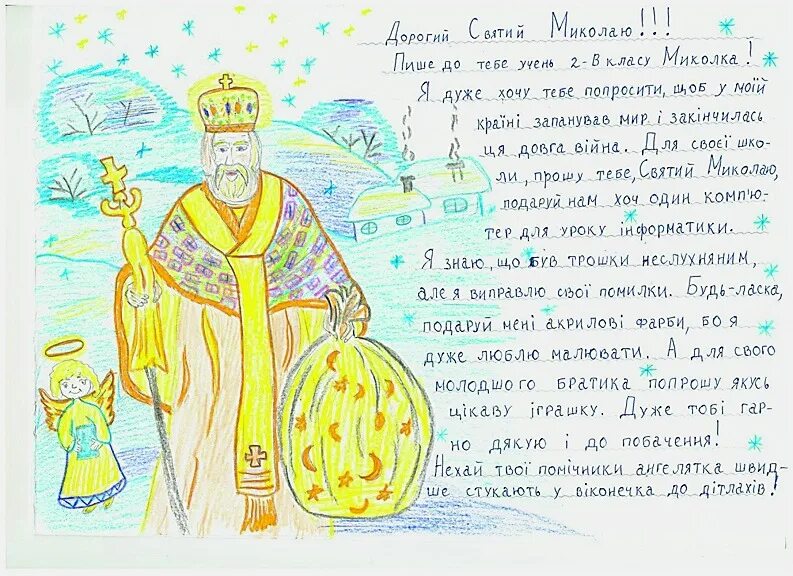 Дорогий Святий Миколаю!!!
Пише до тебе учень 2-В класу Миколка!
Я дуже хочу тебе попросити, щоб у моїй
країні запанував мир і закінчилась
ця довга війна. Для своєї шко-
ли, прошу тебе, Святий Миколаю,
подаруй нам хоч один комп'ю-
тер для уроку інформатики.
Я знаю, що був трошки неслухняним,
але я виправлю свої помилки. Будь-ласка,
подаруй мені акрилові фарби, бо я
дуже люблю малювати. А для свого
молодшого братика попрошу якусь
цікаву іграшку. Дуже тобі гар-
но дякую і до побачення!
Нехай твої помічники ангелятка швид-
ше стукають у віконечка до дітлахів!